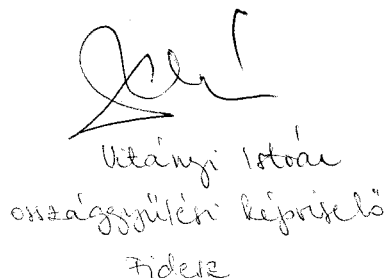 Vitányi István
országgyűlési képviselő
Fidesz